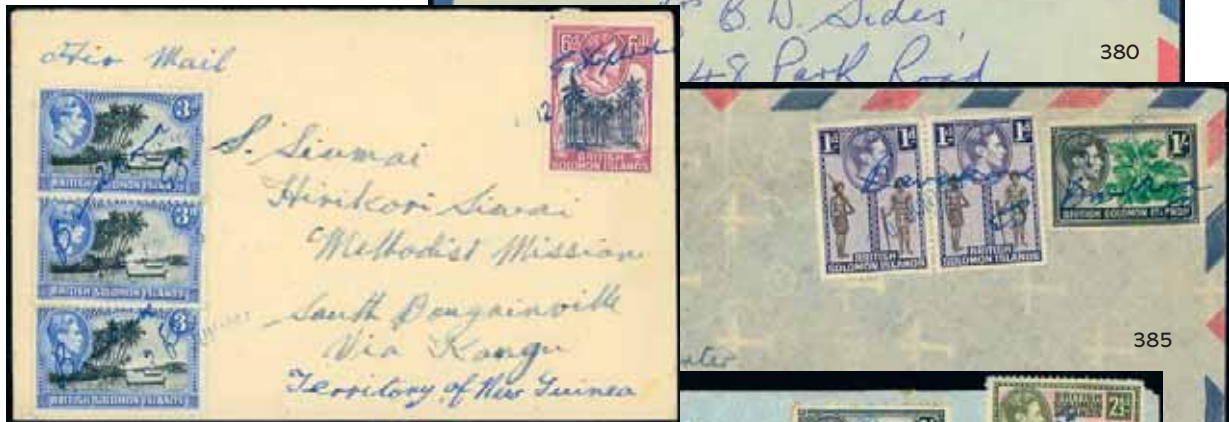 B. D. Sides,
48 Park Road
380
Air Mail
6d
BRITISH
SOLOMON ISLANDS
3d
BRITISH SOLOMON ISLANDS
3d
BRITISH SOLOMON ISLANDS
3d
BRITISH SOLOMON ISLANDS
S. Siumai
Hirikori Siwai
Methodist Mission
South Bougainville
Via Kangu
Territory of New Guinea
1d
BRITISH
SOLOMON ISLANDS
1d
BRITISH
SOLOMON ISLANDS
1/-
BRITISH SOLOMON ISLANDS
385
BRITISH
SOLOMON
ISLANDS
2½d